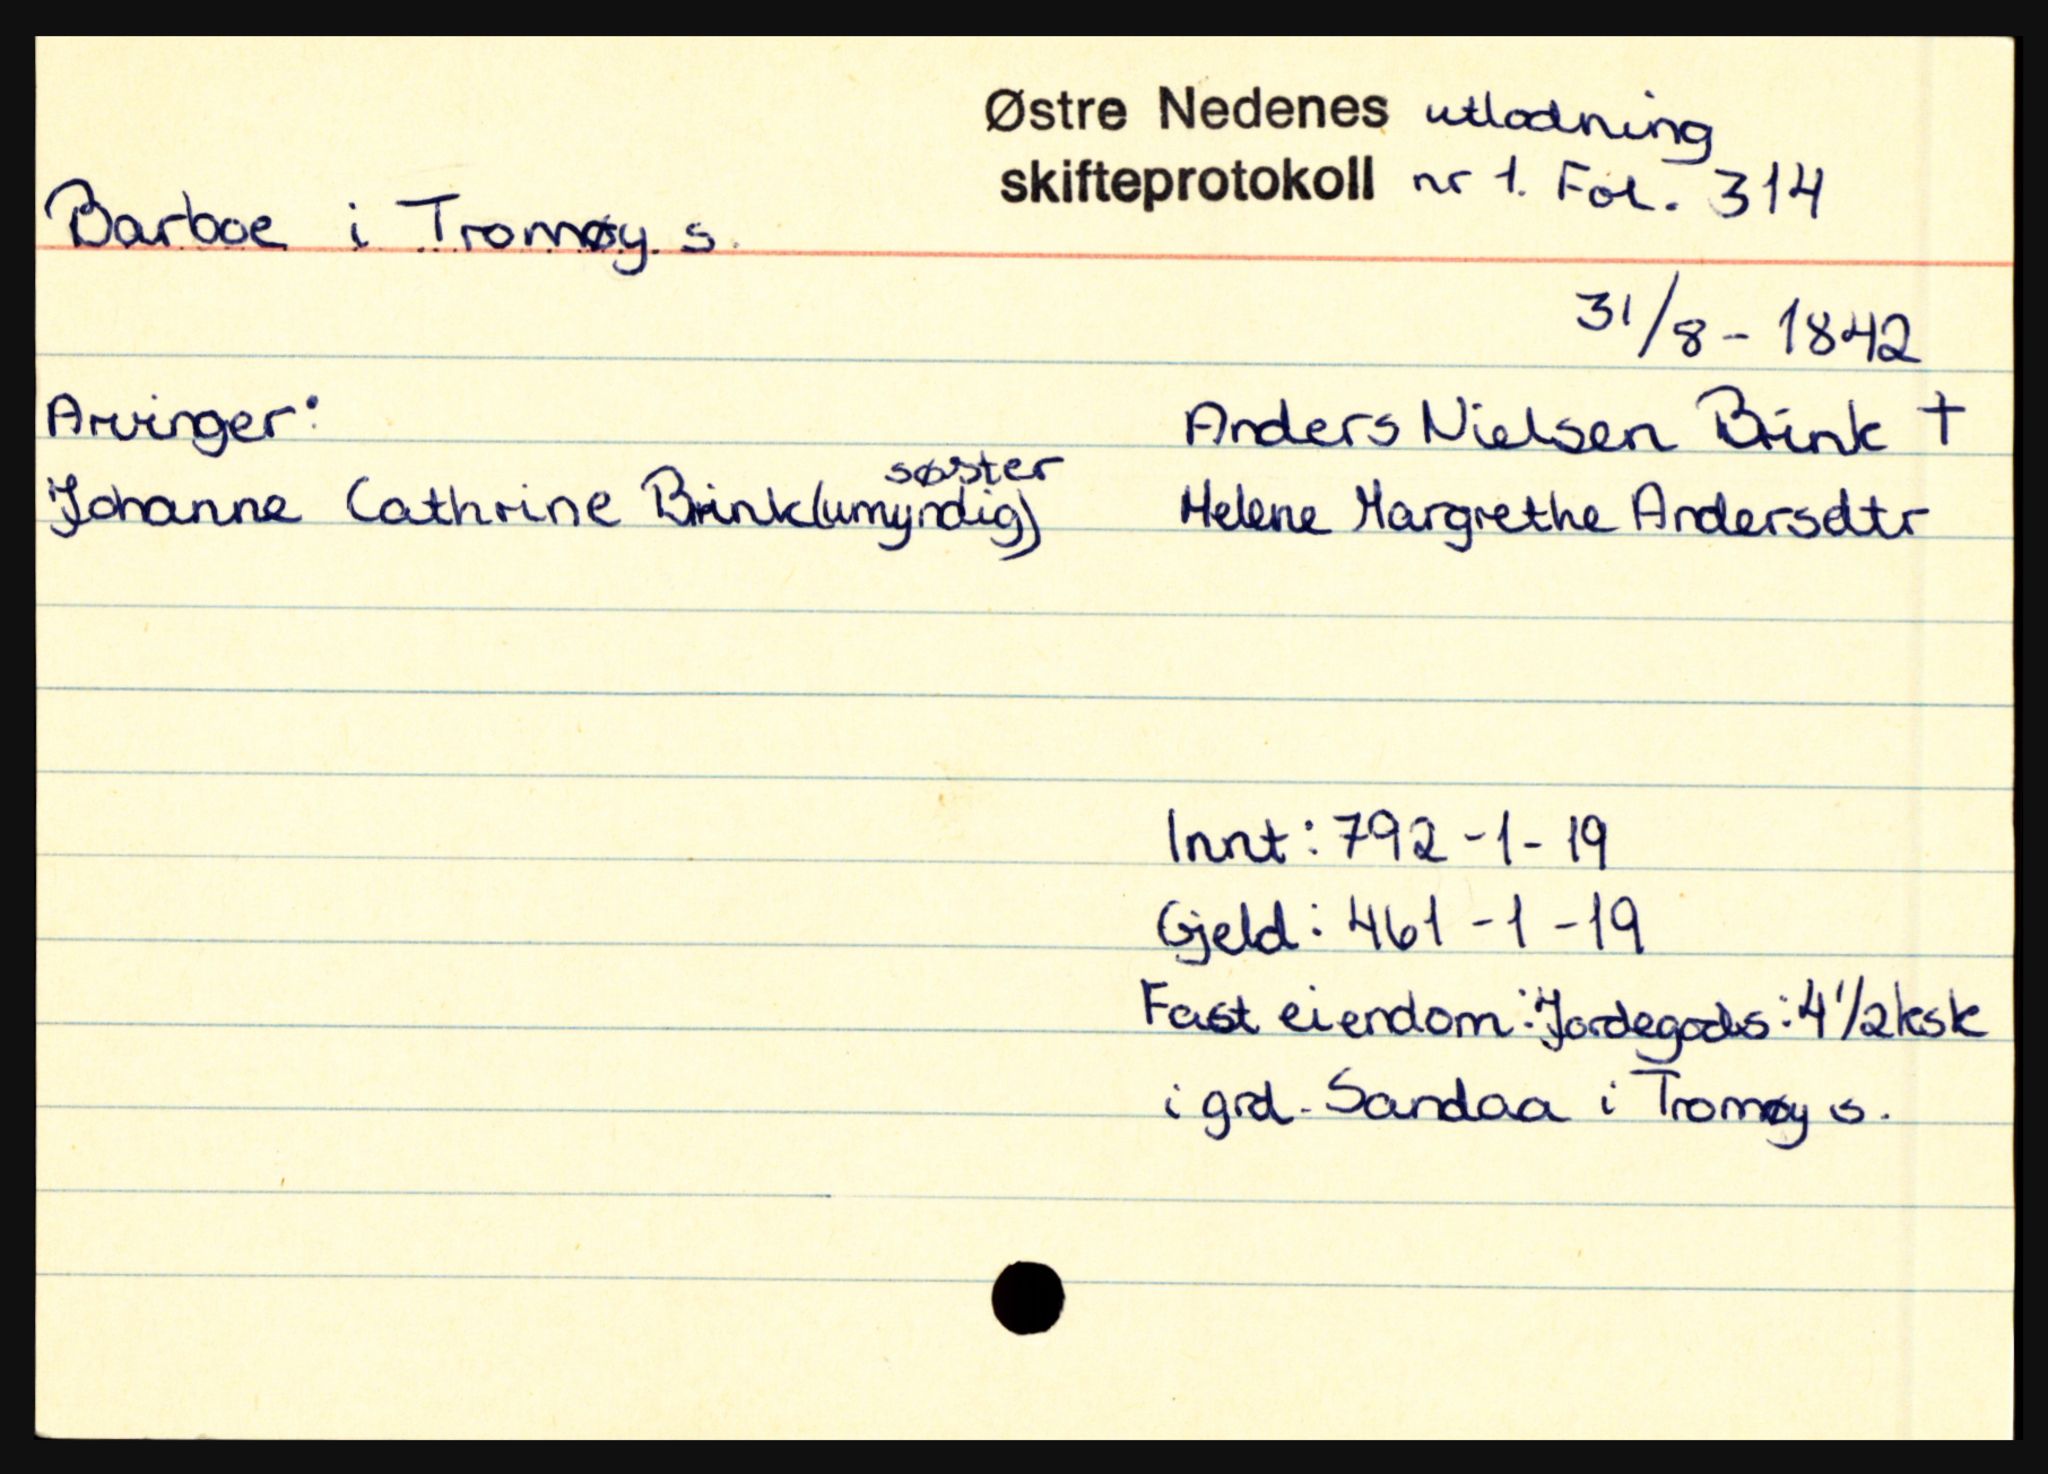 Østre Nedenes utlodning
skifteprotokoll nr 1. Fol. 314
Barboe i Tromøy s.
31/8 - 1842
Arvinger:
Anders Nielsen Brink †
søster
Johanne Cathrine Brink (umyndig)
Helene Margrethe Andersdtr
Innt: 792 - 1 - 19
Gjeld: 461 - 1 - 19
Fast eiendom: Jordegods: 4 1/2 ksk
i grd. Sandaa i Tromøy s.